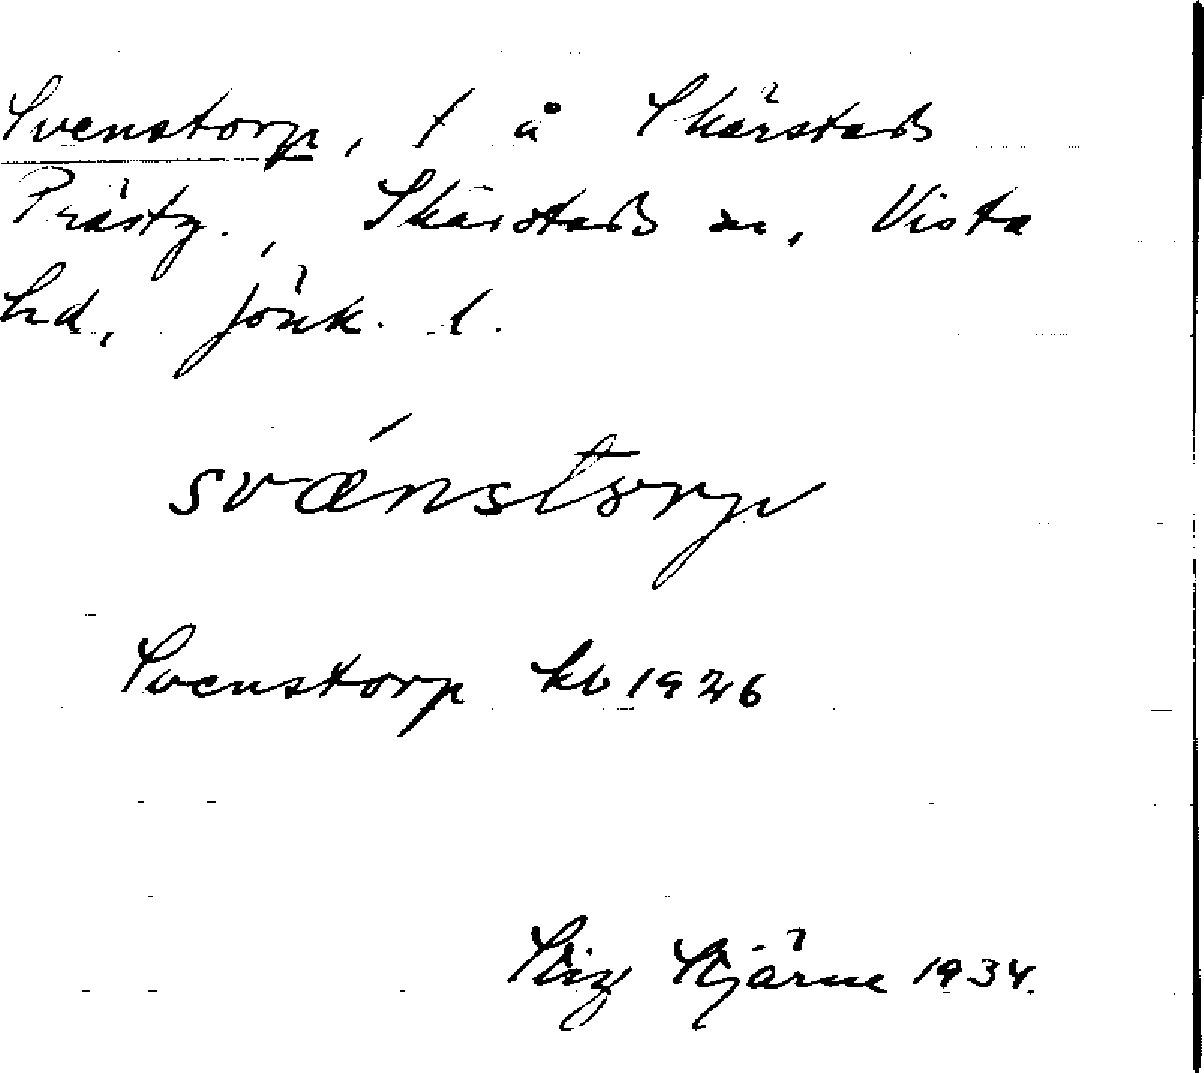 Svenstorp, t å Skärstads
Prästg., Skärstads sn, Vista
hd, Jönk. l.
svǽnstorp
Svenstorp kb 1926
Stig Stjärne 1934.